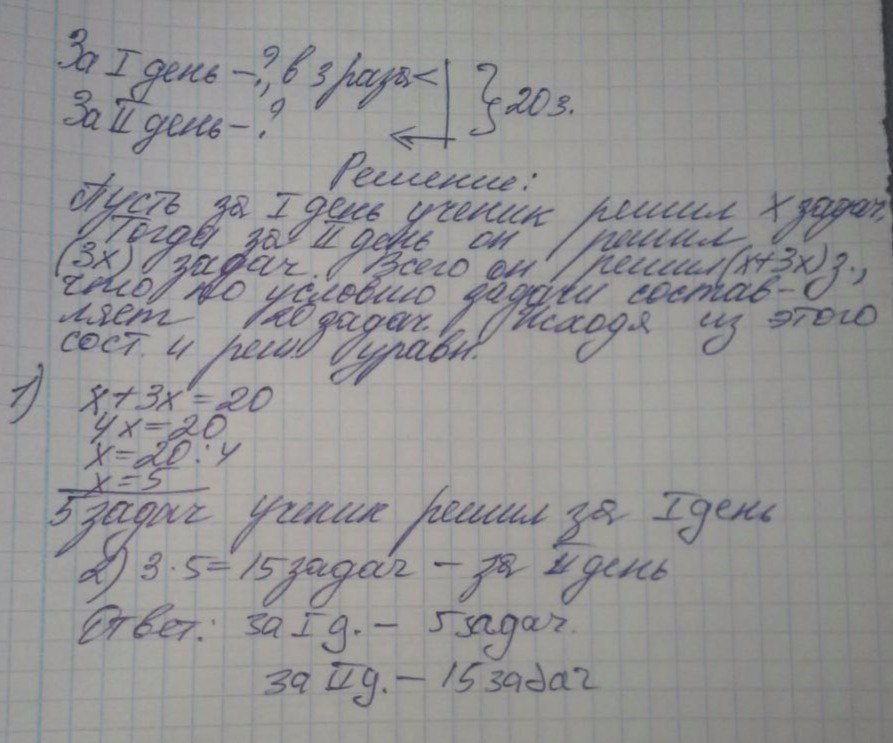 За I день – ?, в 3 раза <
За II день – ? } 20 з.
Решение:
Пусть за I день ученик решил x задач,
Тогда за II день он решил
(3x) задач. Всего он решил (x+3x) з.,
что по условию задачи состав-
ляет 20 задач. Исходя из этого
сост. и реш. уравн.
1) x+3x=20
4x=20
x=20:4
x=5
5 задач ученик решил за I день
2) 3·5=15 задач – за II день
Ответ: за I д. – 5 задач.
за II д. – 15 задач